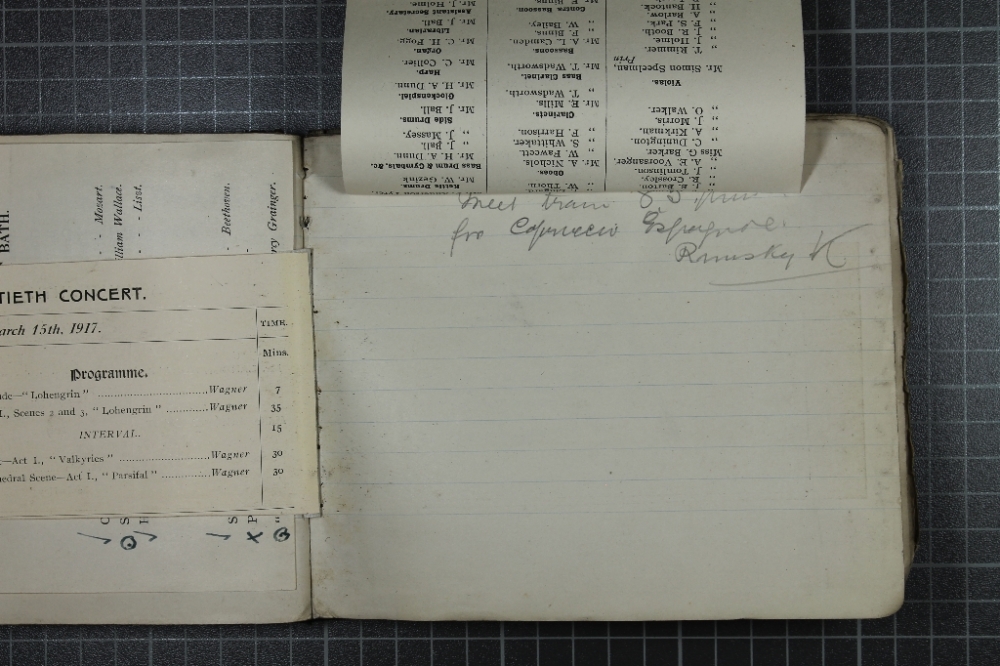 BATH.
Mozart.
William Wallace.
Liszt.
Beethoven.
Percy Grainger.
TIETH CONCERT.
arch 15th, 1917.
TIME.
Mins.
Programme.
ude—"Lohengrin" Wagner 7
I., Scenes 2 and 3, "Lohengrin" Wagner 35
INTERVAL. 15
—Act I., "Valkyries" Wagner 30
edral Scene—Act I., "Parsifal" Wagner 30
meet train
for Capriccio Espagnole.
Rimsky K
„ J. E. Burton.
„ R. Crosley.
„ J. Tomlinson.
„ A. E. Voorsanger.
Miss G. Barker.
„ C. Dunington.
„ A. Kirkman.
„ J. Morris.
„ O. Walker.
Violas.
Mr. Simon Speelman,
Prin
„ T. Rimmer.
„ J. Holme.
„ J. R. Booth.
„ F. S. Park.
„ A. Barlow.
„ H. Bantock.
„ W. Thorn.
Oboes.
Mr. A. Nichols.
„ W. Fawcett.
„ S. Whittaker.
„ F. Harrison.
Clarinets.
Mr. E. Mills.
„ T. Wadsworth.
Bass Clarinet.
Mr. T. Wadsworth.
Bassoons.
Mr. A. L. Camden.
„ F. Binns.
„ W. Bailey.
Contra Bassoon.
Mr. F. Binns.
Kettle Drums.
Mr. W. Gezink.
Bass Drum & Cymbals, &c.
Mr. H. A. Dunn.
„ J. Ball.
„ J. Massey.
Side Drums.
Mr. J. Ball.
Glockenspiel.
Mr. H. A. Dunn.
Harp.
Mr. C. Collier.
Organ.
Mr. C. H. Fogg.
Librarian.
Mr. J. Ball.
Assistant Secretary.
Mr. J. Holme.